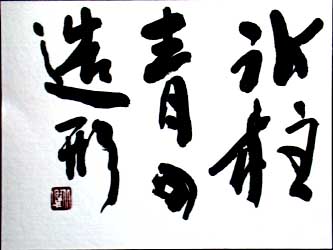 氷柱
青の
造形